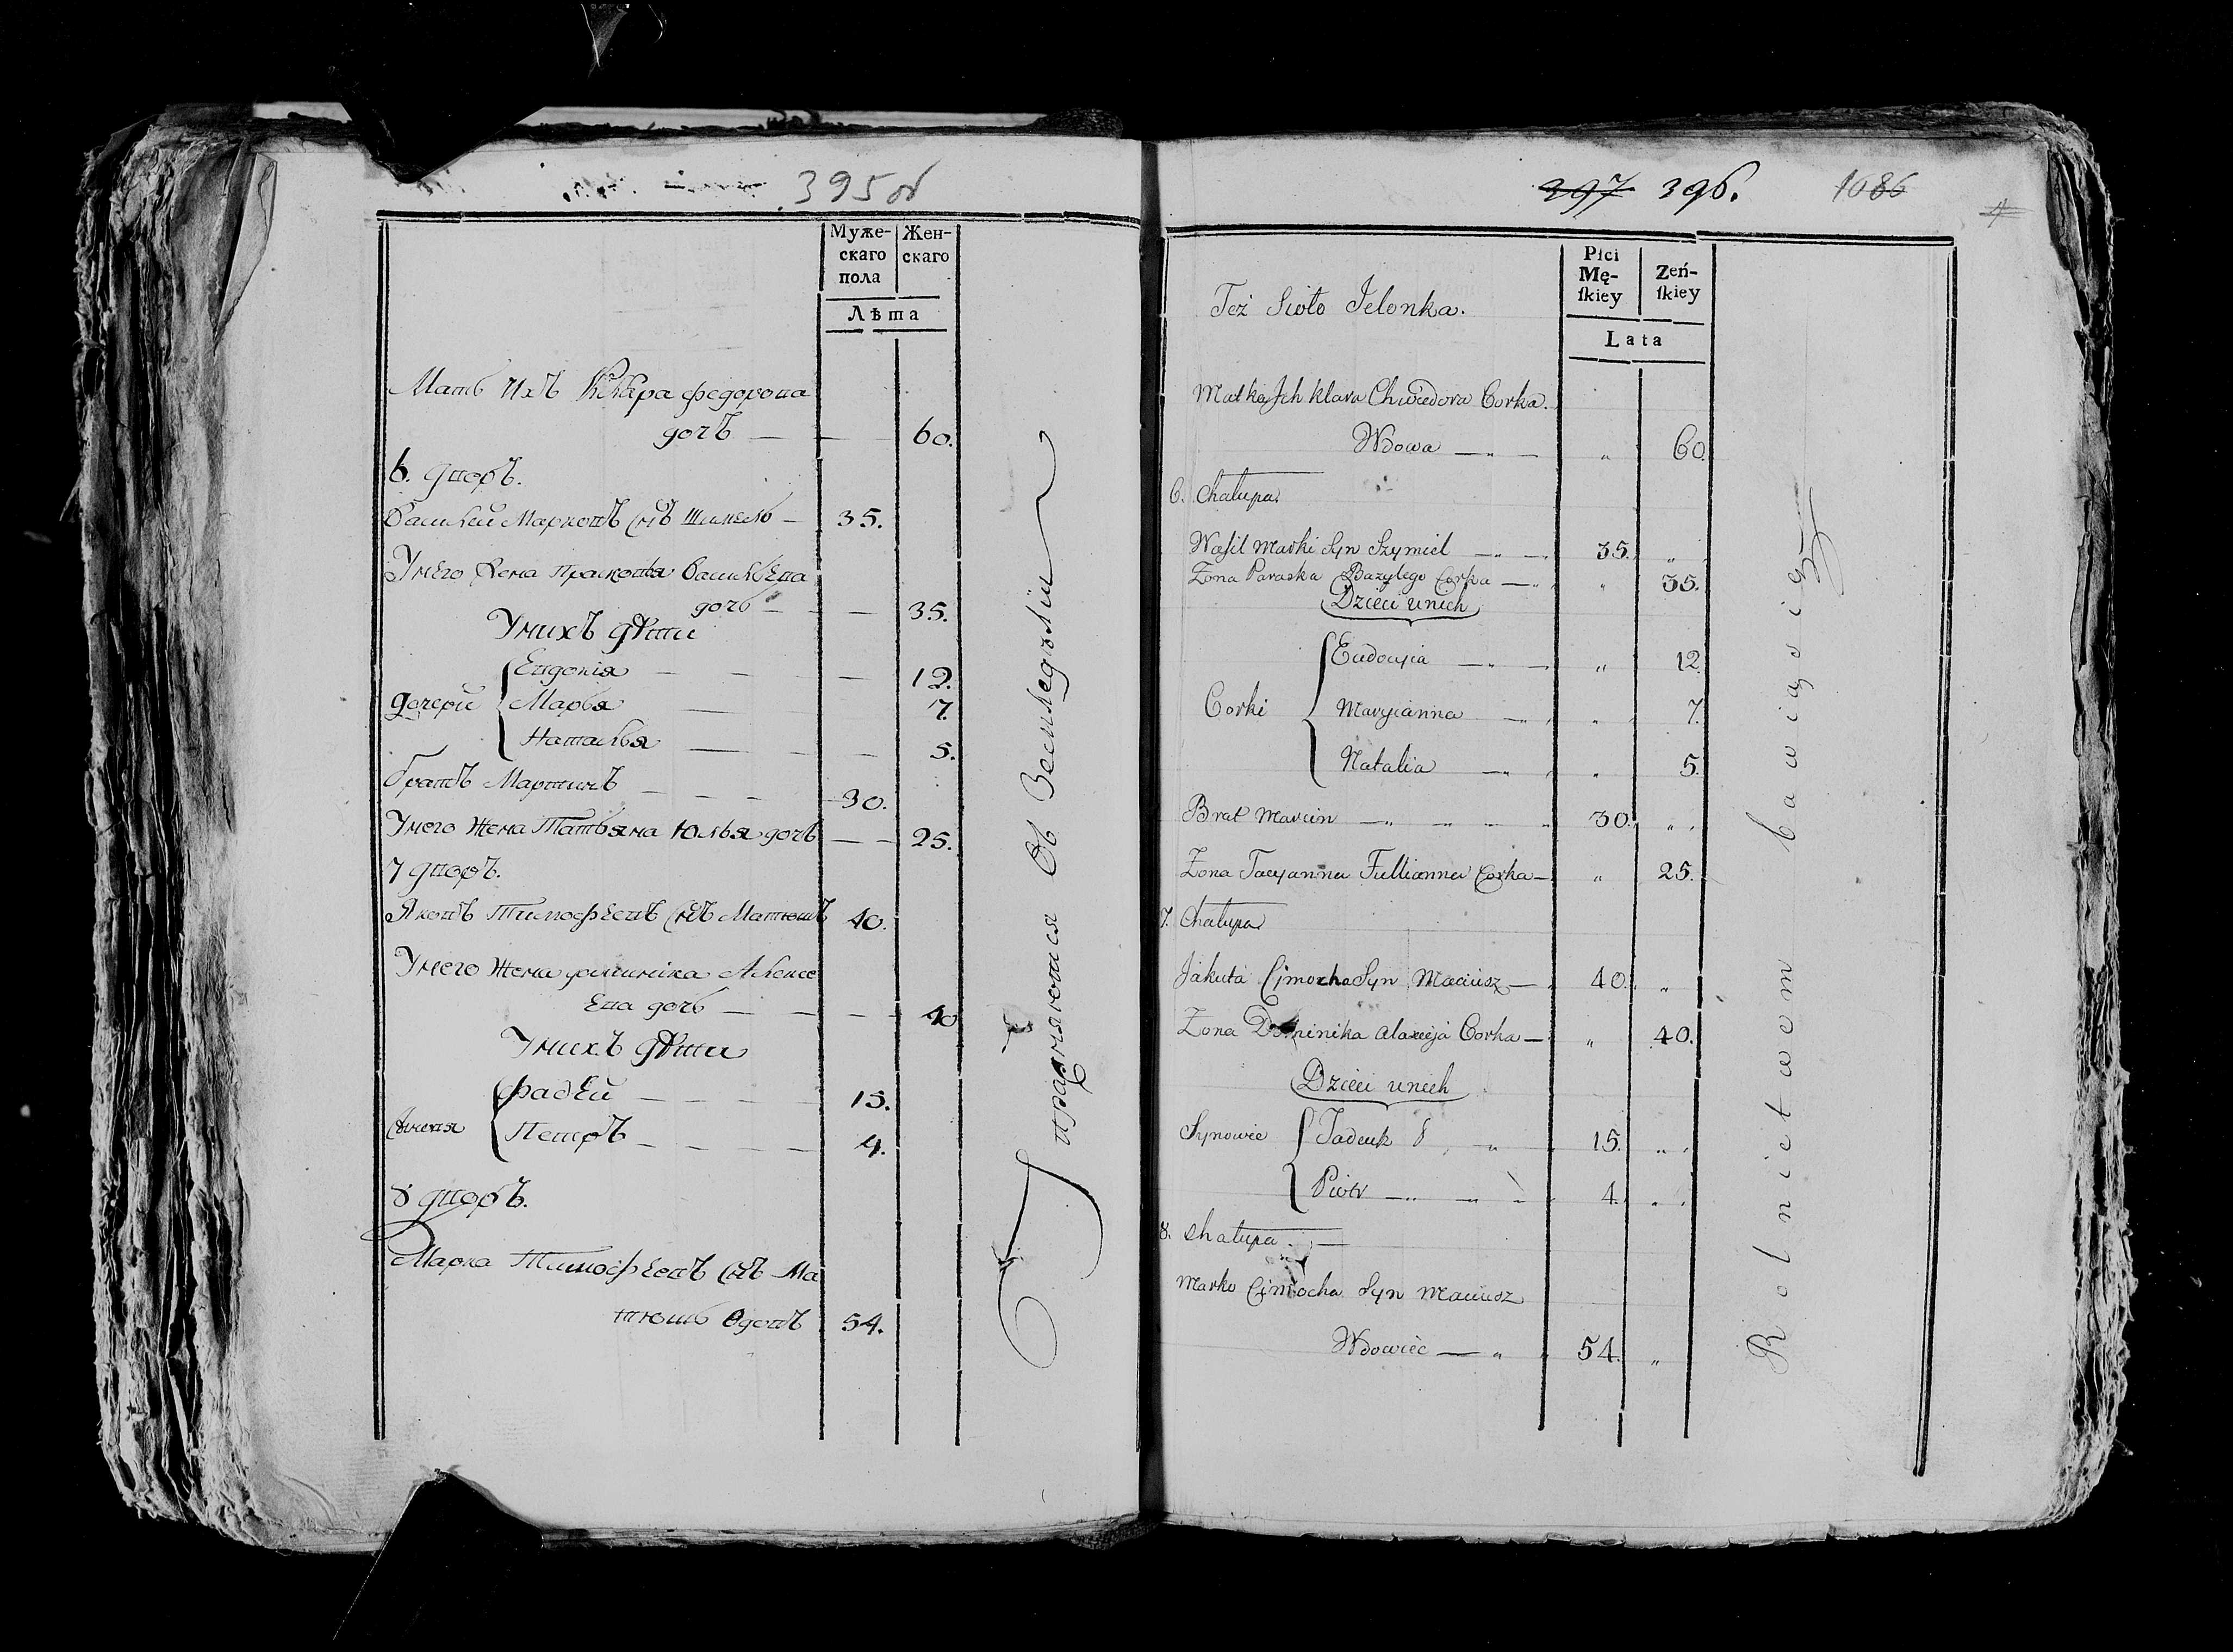 395 об
Муже-
скаго
пола
Жен-
скаго
Лѣта
Мать ихъ Клара Федорова
дочъ — — 60.
6. дворъ.
Василей Марковъ снъ Шимель — 35.
У него жена Прасковья Васильева
дочь — — 35.
У нихъ дѣти
Евдокія — — 12.
дочери Марья — — 7.
Наталья — — 5.
братъ Мартинъ — — — 30.
У него жена Татьяна Юлья дочъ — — 25.
7 дворъ.
Яковъ Тимофеевъ снъ Матюшъ 40.
У него жена доминика Алексе
ева дочь — — — 40
У нихъ дѣти
Фадѣй — — — — 15.
сыновя
Петръ — — — — 4.
8 дворъ.
Марка Тимофеевъ снъ Ма
тюшь вдовъ 54.
Упражняются Въ Земледѣліи
397 396. 1086
4
Też Sioło Jelonka.
Płci
Mę-
ſkiey
Zeń-
ſkiey
Lata
Matka Jch Klara Chwiedora Corka.
Wdowa — „ — „ 60.
6. Chałupa
Waſil Marki Syn Szymiel — „ — 35. „
Żona Paraska Bazylego Corka — „ „ 35.
Dzieci unich
Eudocyia — „ — „ 12
Corki Maryianna — „ „ 7.
Natalia — „ „ 5.
Brat Marcin — „ — — — 30. „
Żona Tacyanna Jullianna Corka — „ 25.
7. Chałupa
Jakuta Cimocha Syn Maciusz — 40. „
Żona Dominika Alaxieja Corka — „ 40.
Dzieci unich
Synowie Tadeuk „ 15. „
Piotr — „ „ 4. „
8. Chałupa
Marko Cimocha Syn Maciusz
Wdowiec — „ „ 54. „
Rolnictwem bawią się